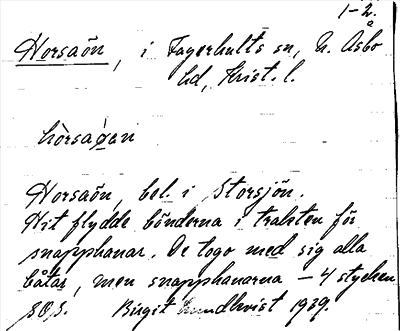 1-2.
Horsaön, i Fagerhults sn, N. Åsbo
hd, Krist. l.
hòrsaǫan
Horsaön, bel. i Storsjön.
Hit flydde bönderna i trakten för
snapphanar. De togo med sig alla
båtar, men snapphanarna – 4 stycken
Birgit Lundkvist 1929.